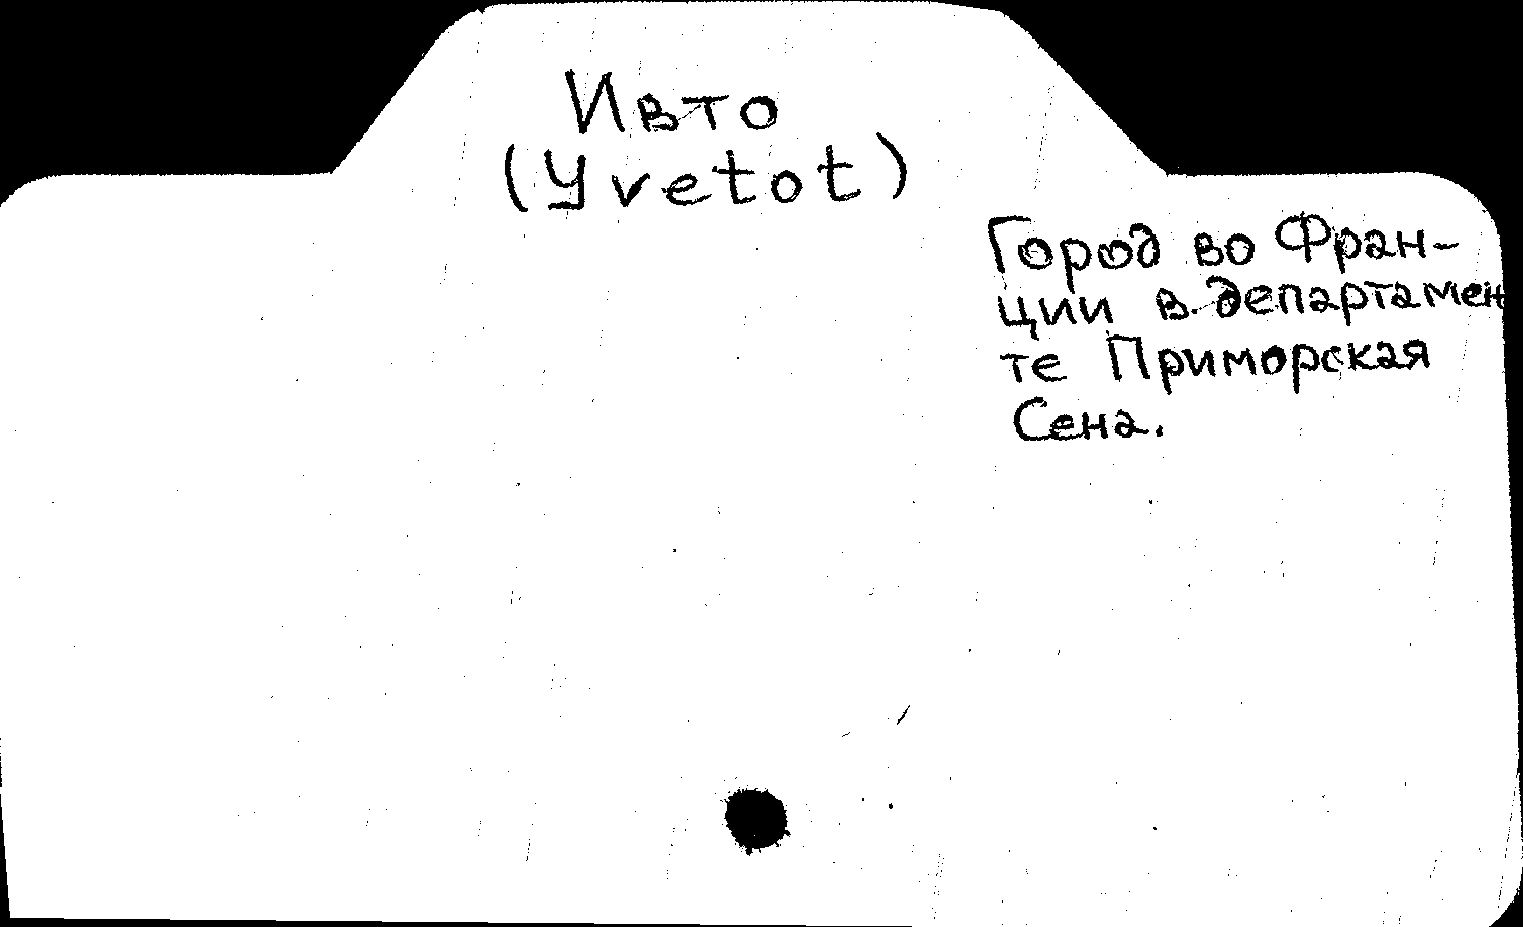 Ивто
(Yvetot)
Город во Фран-
ции в департамен
те Приморская
Сена.